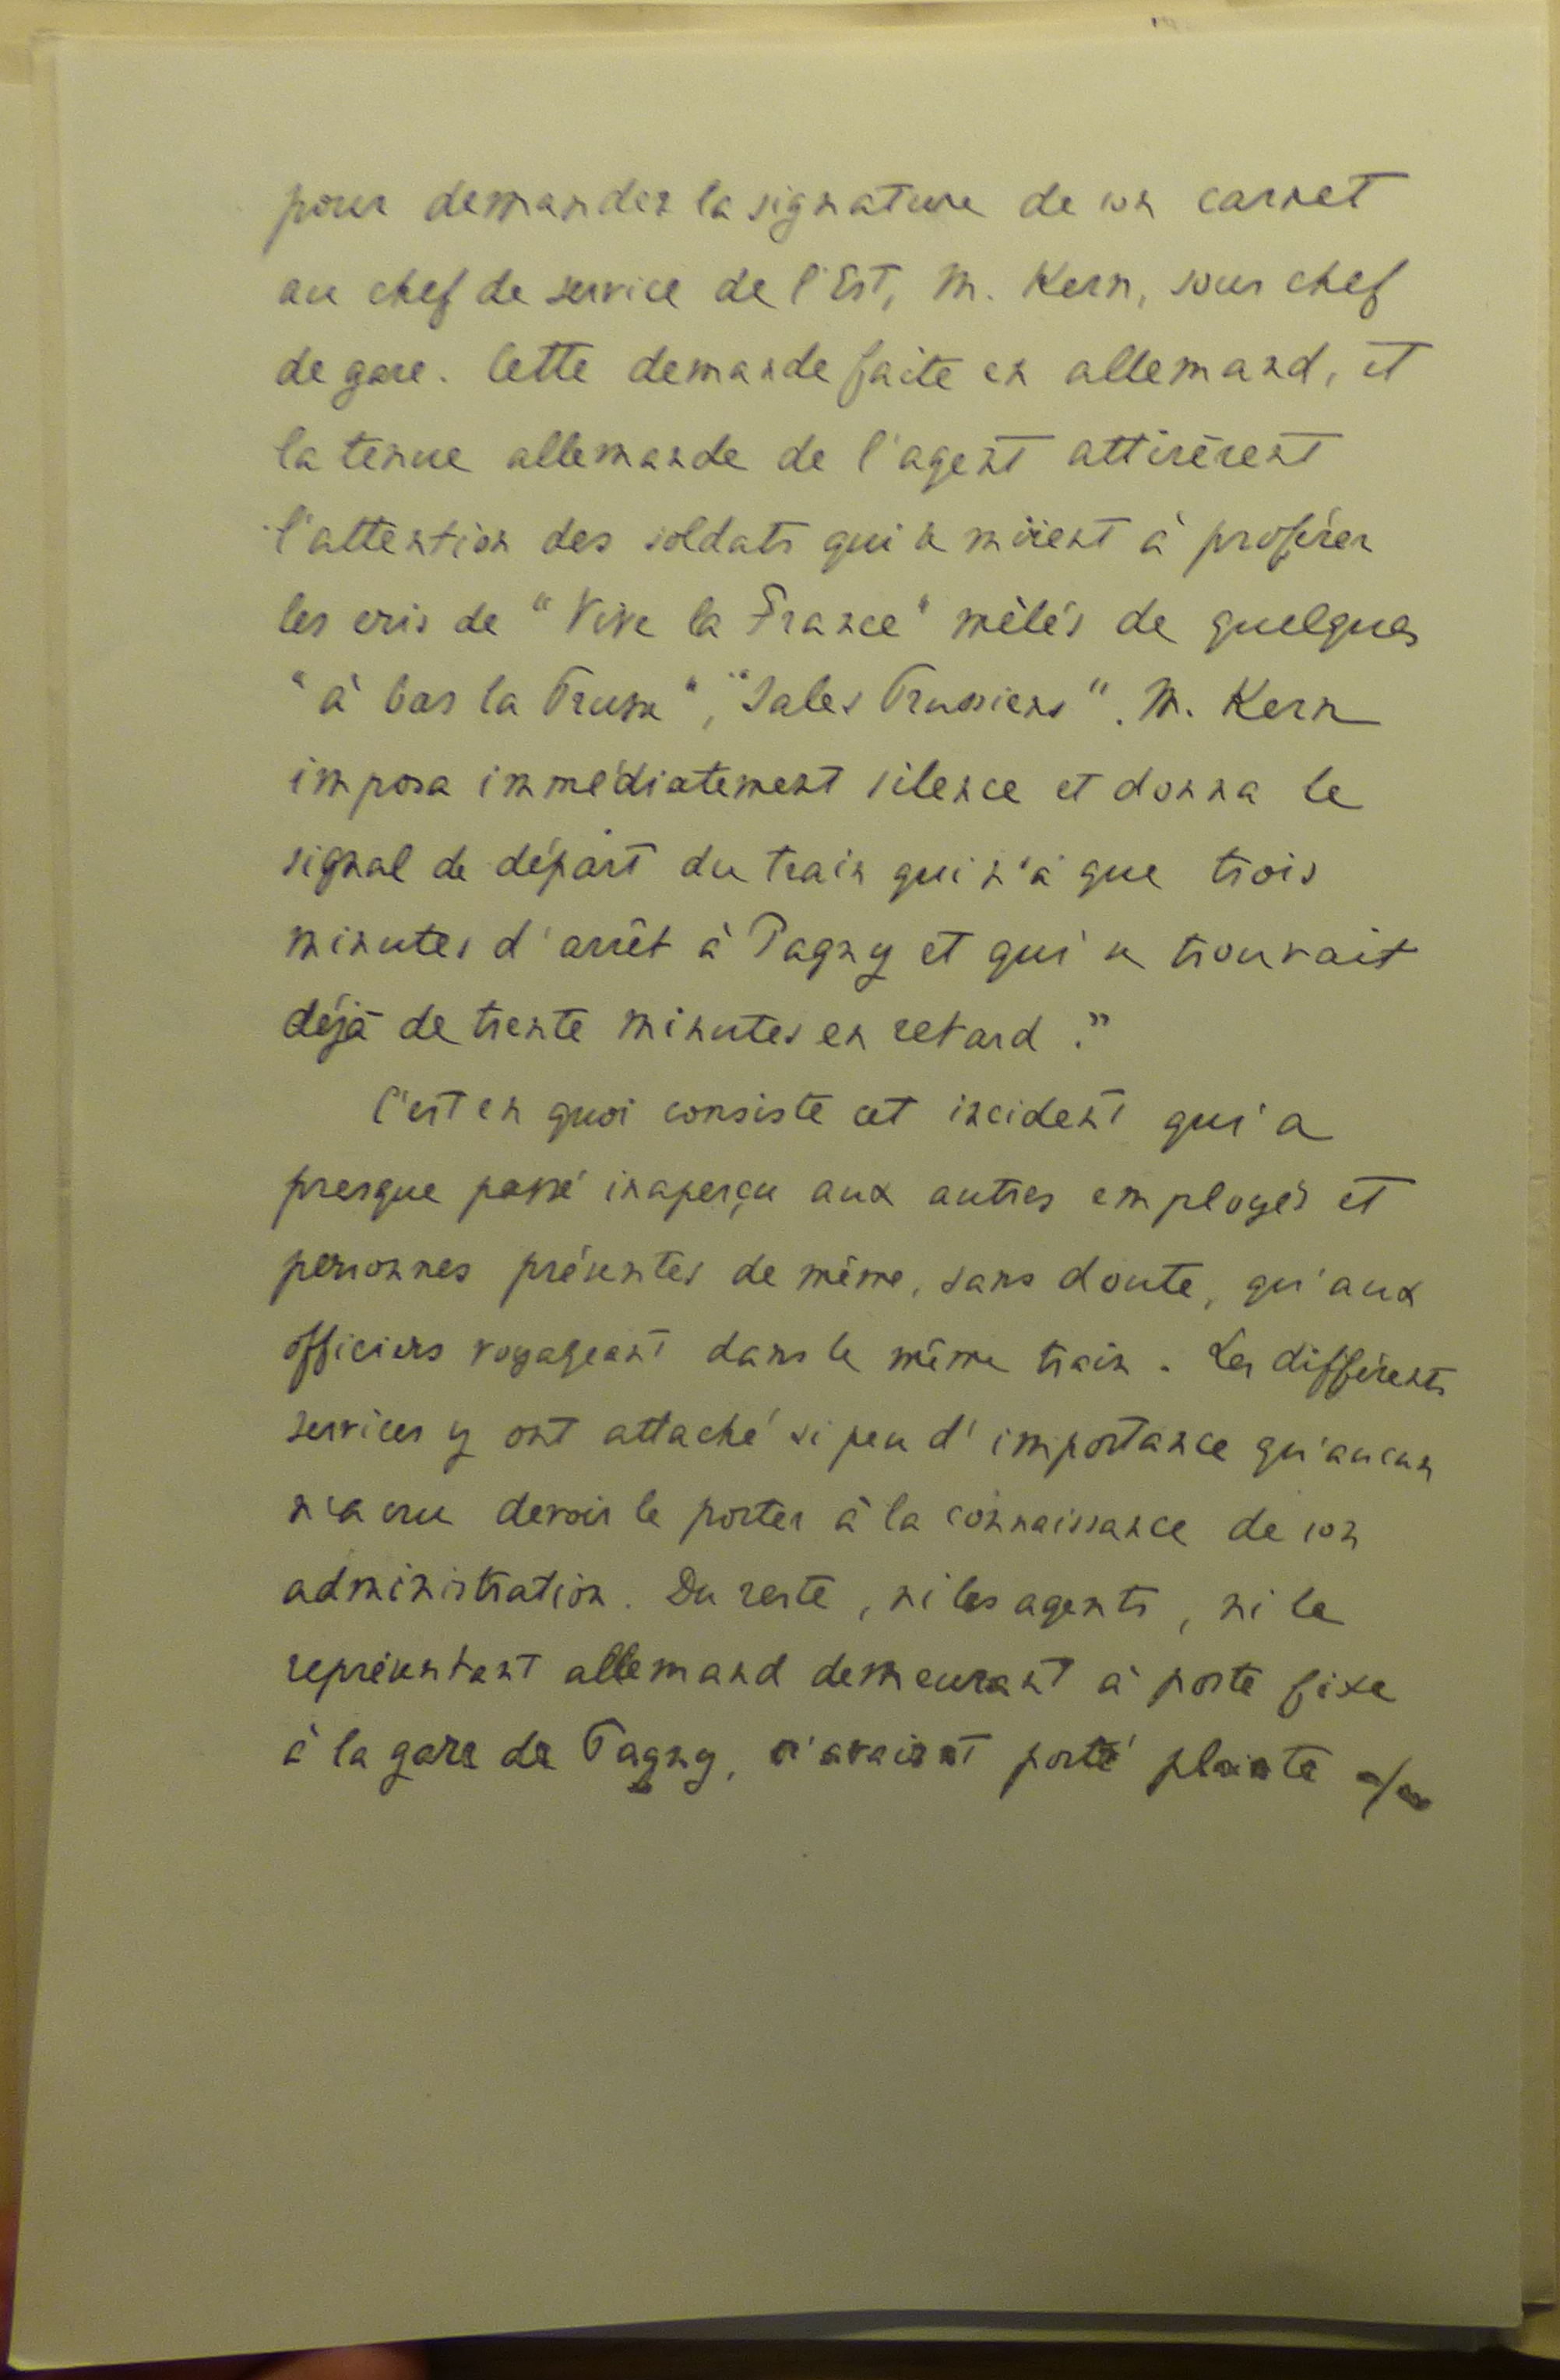 pour demander la signature de son carnet
au chef de service de l'Est, M. Kern, sous chef
de gare. Cette demande faite en allemand, et
la tenue allemande de l'agent attirèrent
l'attention des soldats qui se mirent à proférer
les cris de "Vive la France" mêlés de quelques
"à bas la Prusse", "Sales Prussiens". M. Kern
imposa immédiatement silence et donna le
signal de départ du train qui n'a que trois
minutes d'arrêt à Pagny et qui se trouvait
déjà de trente minutes en retard."
C'est en quoi consiste cet incident qui a
presque passé inaperçu aux autres employés et
personnes présentes de même, sans doute, qu'aux
officiers voyageant dans le même train. Les différents
services y ont attaché si peu d'importance qu'aucun
n'a cru devoir le porter à la connaissance de son
administration. Du reste, ni les agents, ni le
représentant allemand demeurant à poste fixe
à la gare de Pagny, n'avaient porté plainte